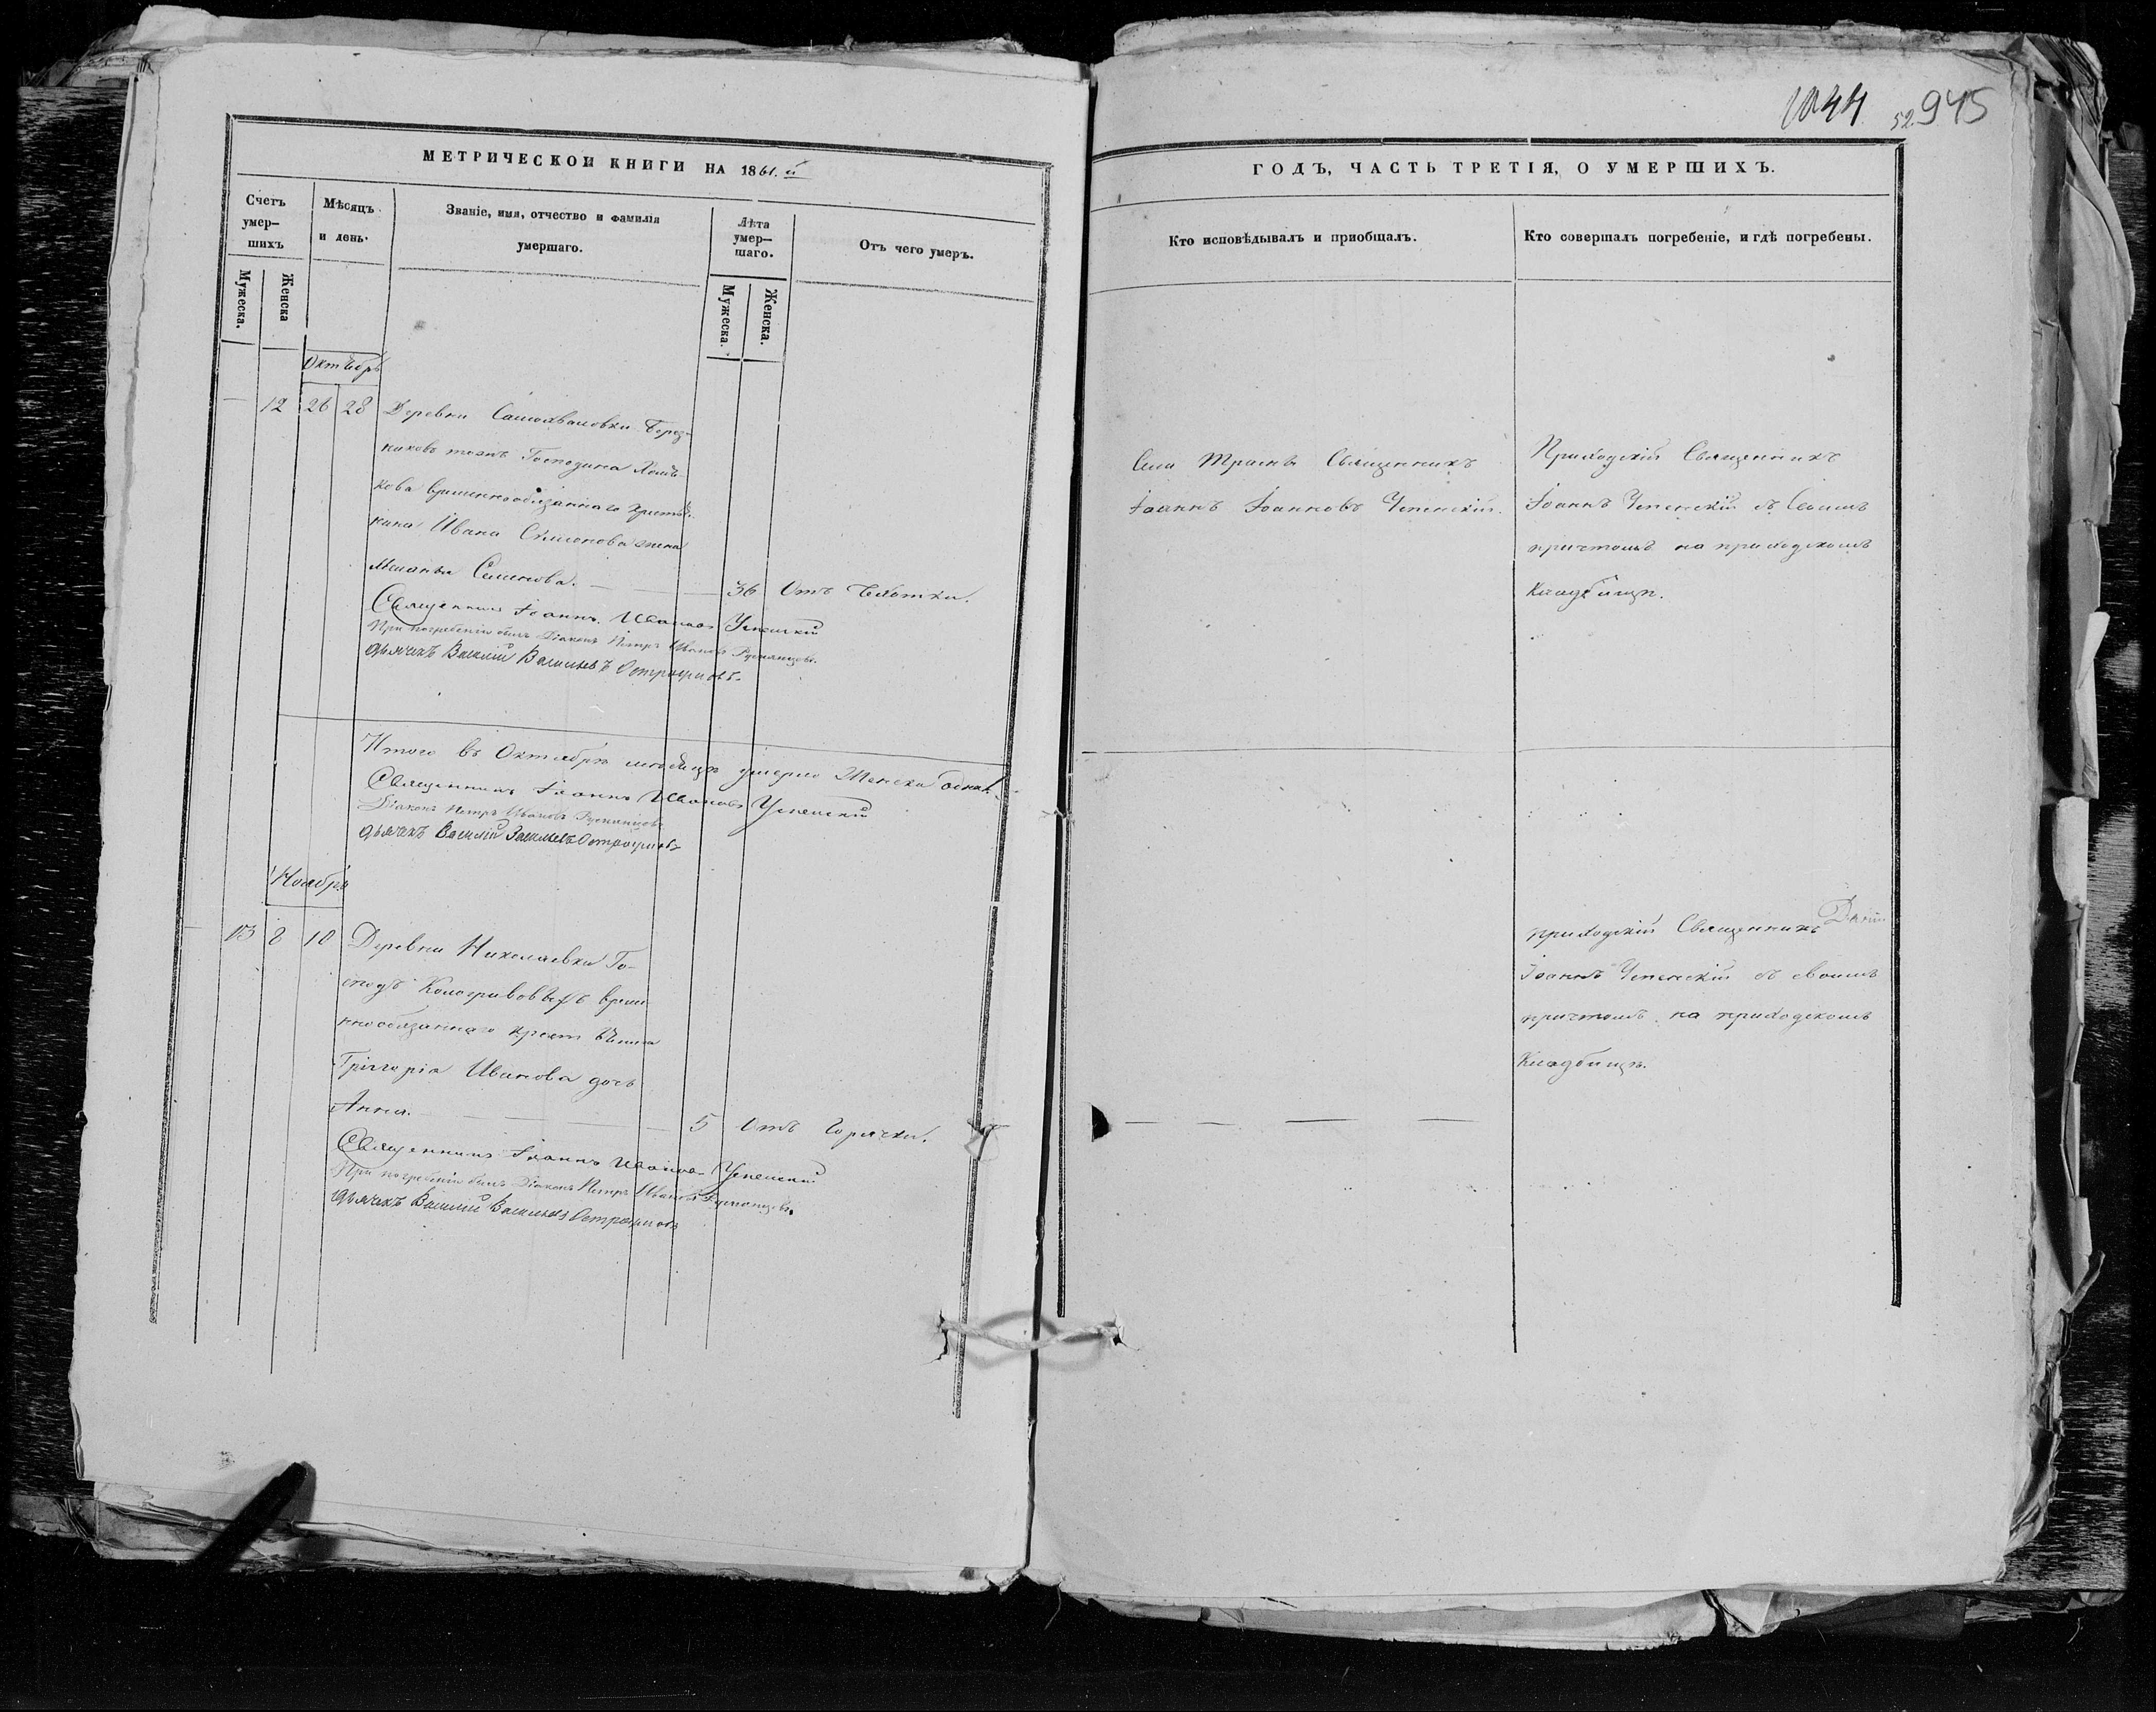 1044 52 945
МЕТРИЧЕСКОЙ КНИГИ НА 1861.й
Счетъ умер-шихъ
Мѣсяцъ и день.
Званіе, имя, отчество и фамилія умершаго.
Лѣта умер-шаго.
Отъ чего умеръ.
Мужеска.
Женска
Мужеска.
Женска.
Октябрь
12 26 28 Деревни
Господина
кова временнообязаннаго кресть
янина Ивана Симонова жена
Семенова. 36 Отъ Чахотки.
Священникъ Іоаннъ Ивановъ Успенскій
При погребеніи былъ Діаконъ Петръ Ивановъ Румянцовъ.
дьячекъ Василій Васильевъ
Итого въ Октябрѣ мѣсяцѣ умерло Женска одна.
Священникъ Іоаннъ Ивановъ Успенскій
Діаконъ Петръ Ивановъ Румянцовъ
дьячекъ Василій Васильевъ
Ноябрь
13 8 10 Деревни Николаевки Го-
сподъ Кологривовыхъ време
ннообязаннаго крестьянина
Григорія Иванова дочь
Анна. 5 Отъ Горячки.
Священникъ Іоаннъ Ивановъ Успенскій
При погребеніи былъ Діаконъ Петръ Ивановъ Румянцовъ.
дьячекъ Василій Васильевъ
ГОДЪ, ЧАСТЬ ТРЕТІЯ, О УМЕРШИХЪ.
Кто исповѣдывалъ и пріобщалъ.
Кто совершалъ погребеніе, и гдѣ погребены.
Священникъ
Іоаннъ Іоанновъ Успенскій.
Приходскій Священникъ
Іоаннъ Успенскій съ своимъ
причтомъ на приходскомъ
Кладбищѣ.
приходскій Священникъ
Іоаннъ Успенскій съ своимъ
причтомъ на приходскомъ
Кладбищѣ.